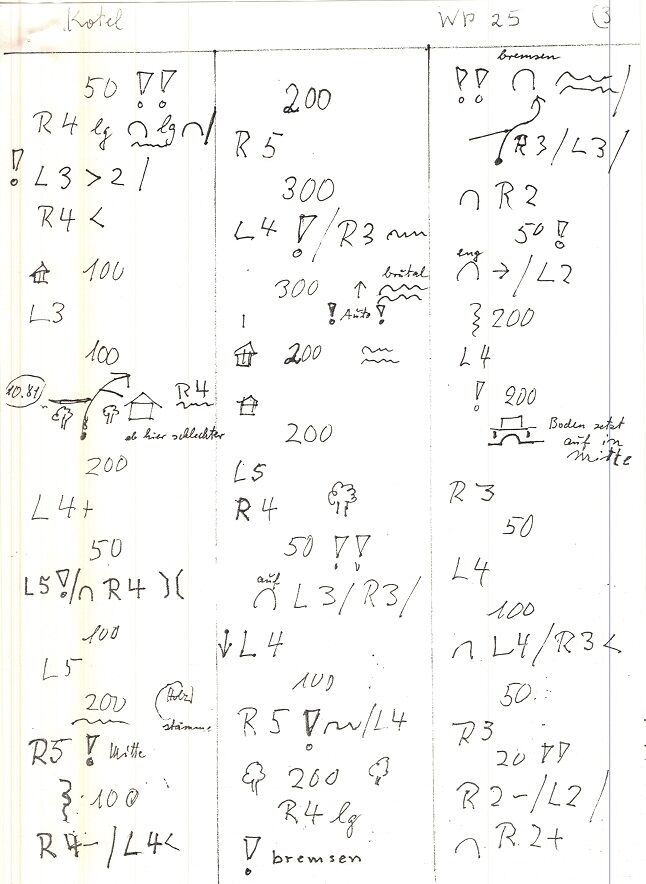 Kotel WP 25 (3
50 !!
R4 lg ∩ lg ∩/
! L3 > 2 /
R4 <
100
L3
100
10.81 R4
ab hier schlechter
200
L4+
50
L5 !/∩ R4 )(
100
L5
200 (Holz)
stämme
R5 ! Mitte
} 100
R4-/L4<
200
R5
300
L4 !/R3
300 ↑ brutal
! Auto !
200
200
L5
R4
50 !!
auf
∩ L3/R3/
↓ L4
100
R5 ! /L4
200
R4 lg
! bremsen
bremsen
!! ∩ /
R3/L3/
∩ R2
50 !
eng
∩ → /L2
} 200
L4
! 200
Boden setzt
auf in
Mitte
R3
50
L4
100
∩ L4/R3<
50
R3
20 !!
R2-/L2/
∩ R2+